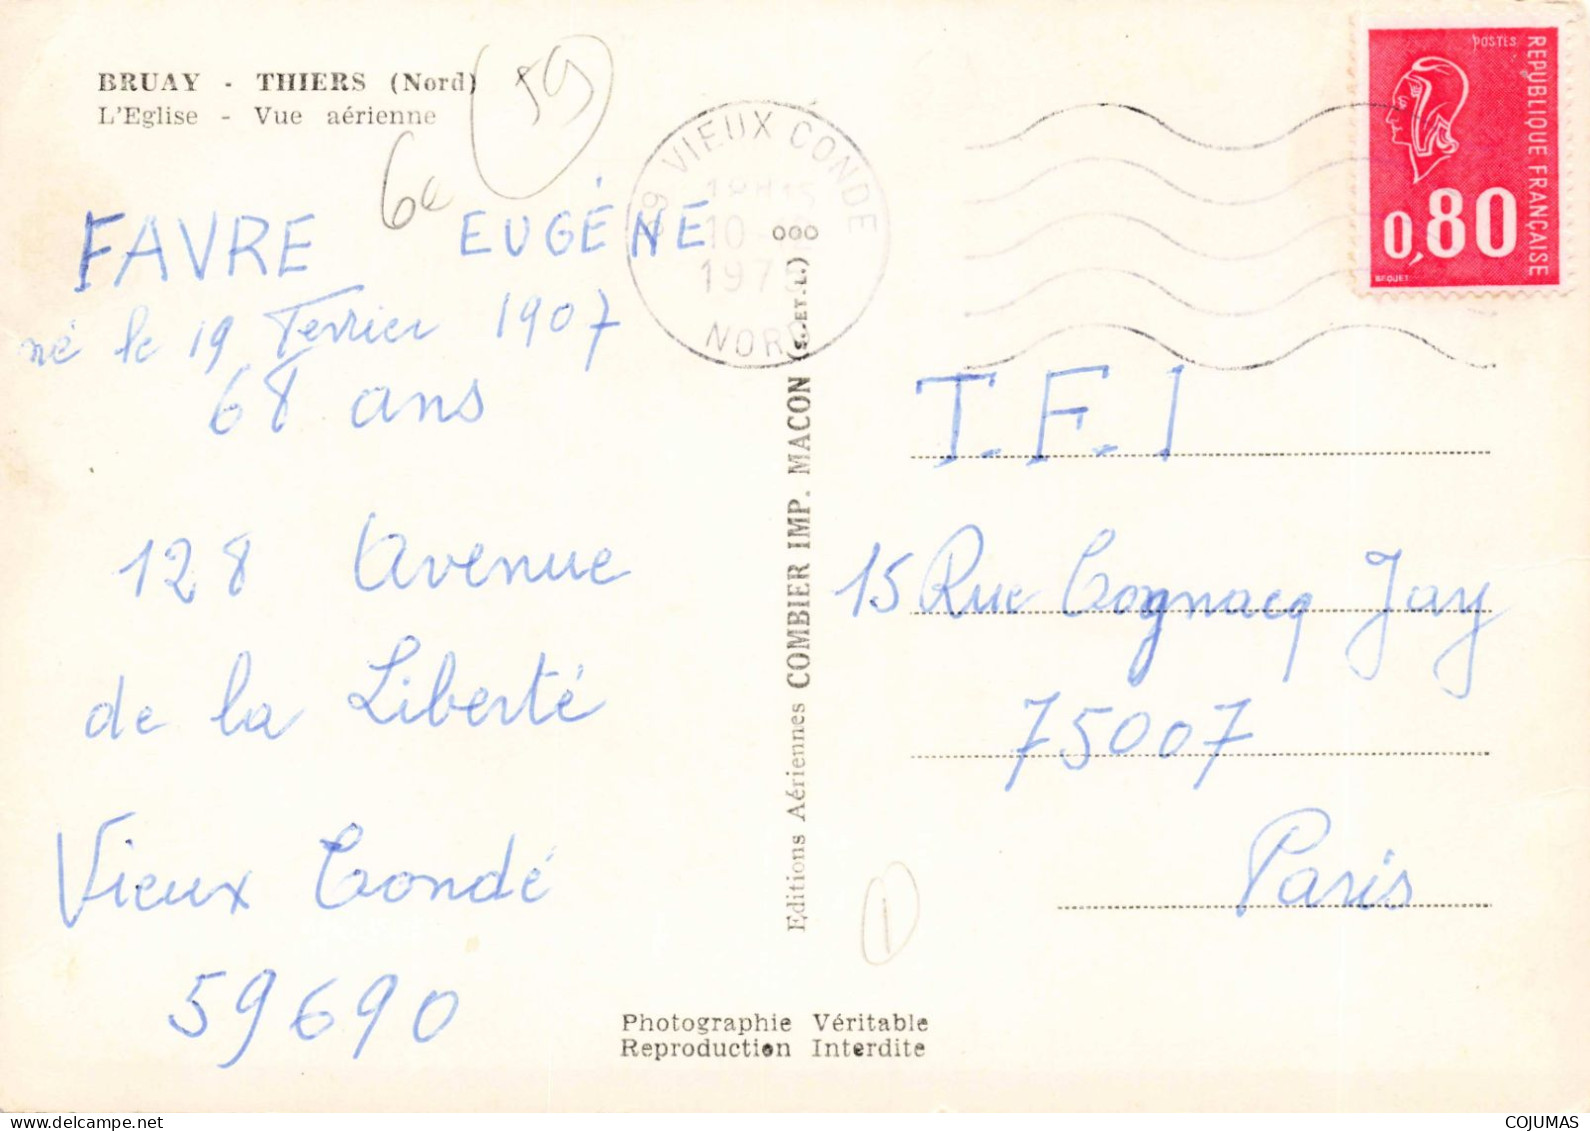 BRUAY - THIERS (Nord)
L'Eglise - Vue aérienne
59
6e
FAVRE EUGÉNE
né le 19 Fevrier 1907
68 ans
128 Avenue
de la Liberté
Vieux Condé
59690
59 VIEUX CONDE
NORD
Editions Aériennes COMBIER IMP. MACON (S.-ET-L.)
POSTES
REPUBLIQUE FRANÇAISE
0,80
BEQUET
T.F.1
15 Rue Cognacq Jay
75007
Paris
1
Photographie Véritable
Reproduction Interdite
COJUMAS